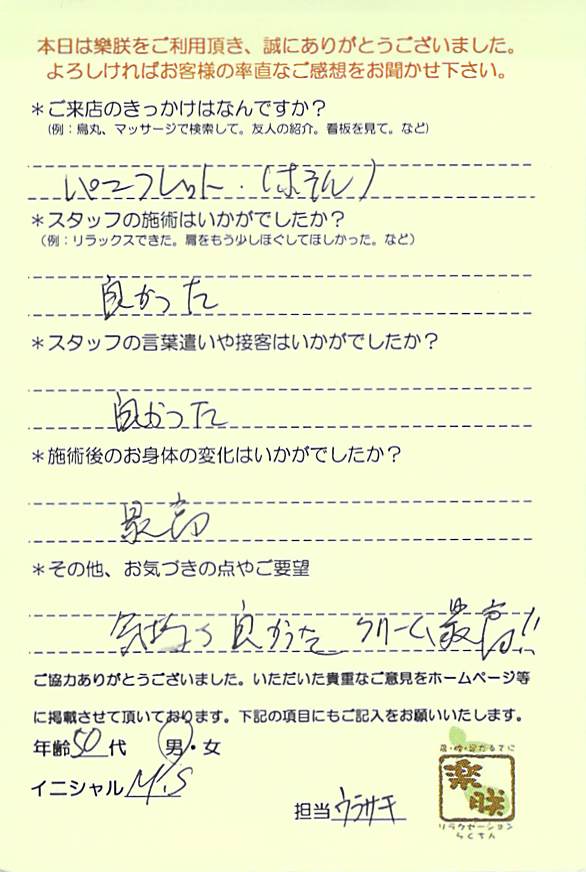 本日は樂朕をご利用頂き、誠にありがとうございました。
よろしければお客様の率直なご感想をお聞かせ下さい。
＊ご来店のきっかけはなんですか？
（例：烏丸、マッサージで検索して。友人の紹介。看板を見て。など）
パンフレット.（はそん）
＊スタッフの施術はいかがでしたか？
（例：リラックスできた。肩をもう少しほぐしてほしかった。など）
良かった
＊スタッフの言葉遣いや接客はいかがでしたか？
良かった
＊施術後のお身体の変化はいかがでしたか？
最高
＊その他、お気づきの点やご要望
気持ち良かった クリーム最高!!
ご協力ありがとうございました。いただいた貴重なご意見をホームページ等
に掲載させて頂いております。下記の項目にもご記入をお願いいたします。
年齢50代 男・女
イニシャル M.S
担当 ウラサキ
樂朕
リラクゼーション
らくちん